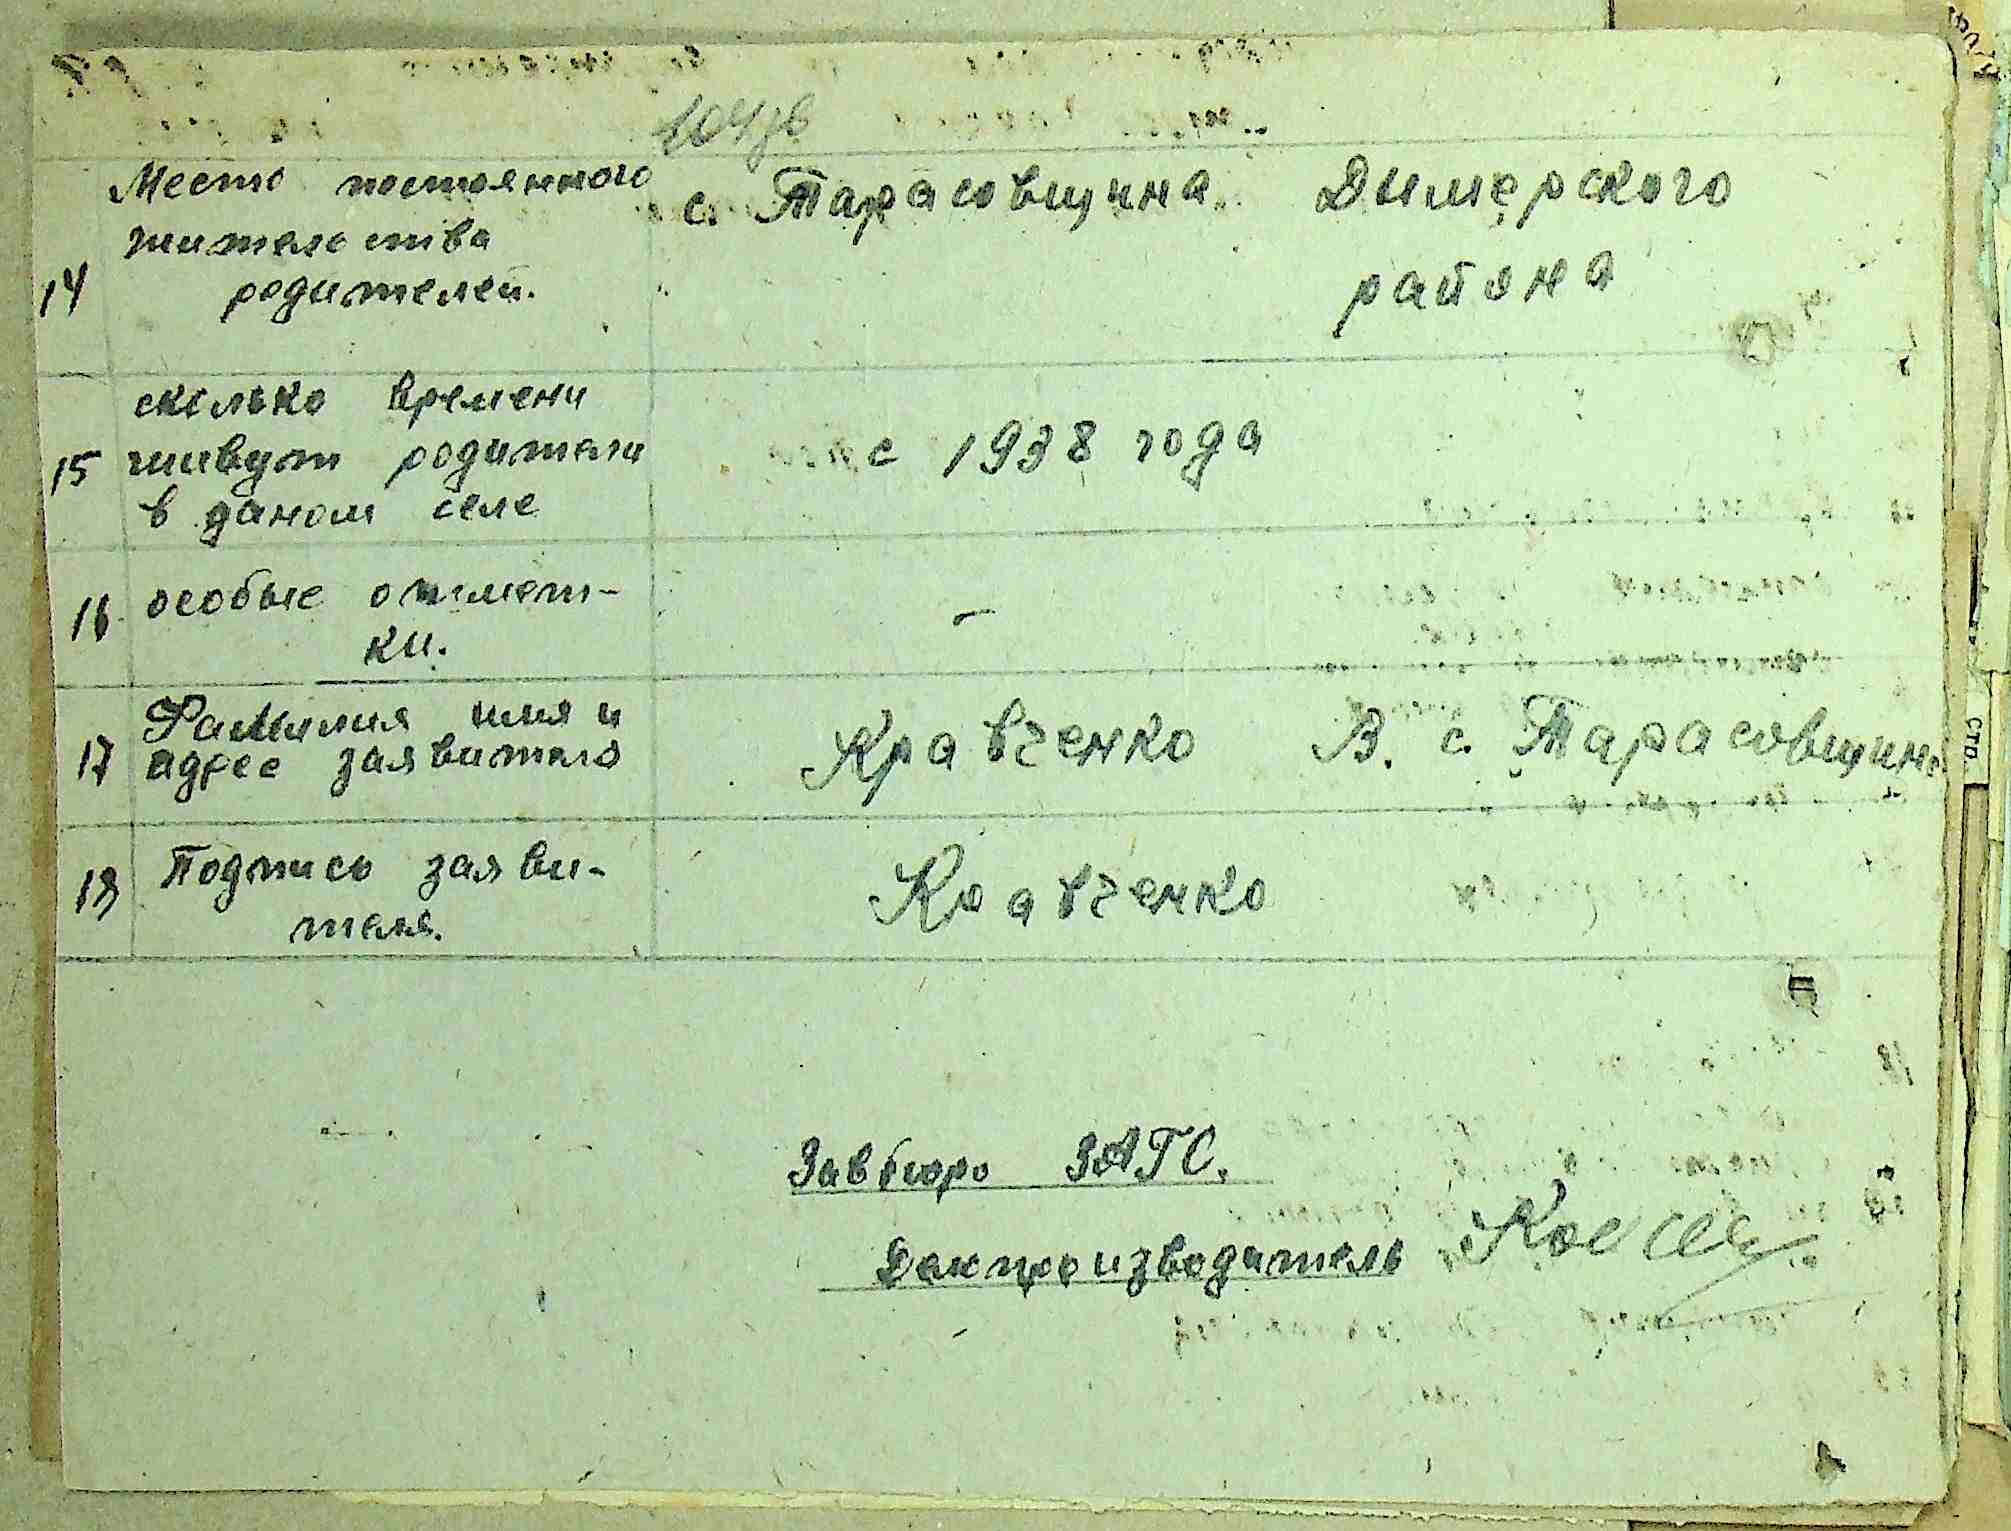 14 Место постоянного
жительства
родителей.
с. Тарасовщина Дымерского
района
15 сколько времени
живут родители
в даном селе
с 1938 года
16 особые отмет-
ки.
–
17 Фамилия имя и
адрес заявителя
Кравченко В. с. Тарасовщина
18 Подпись заяви-
теля.
Кравченко
Завбюро ЗАГС.
Делопроизводитель